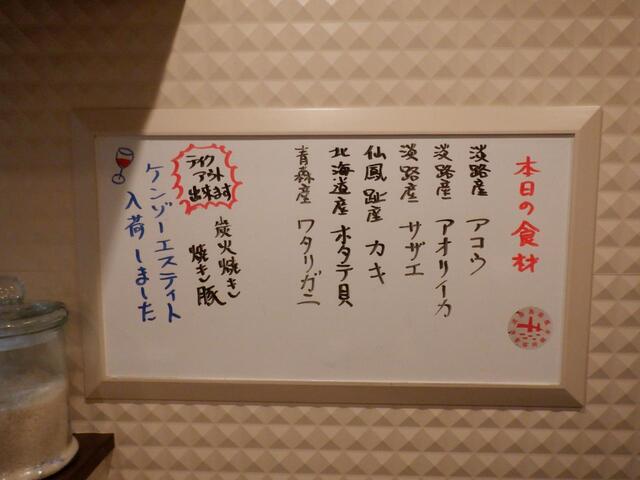 本日の食材
淡路産 アコウ
淡路産 アオリイカ
淡路産 サザエ
仙鳳趾産 カキ
北海道産 ホタテ貝
青森産 ワタリガニ
炭火焼き
焼き豚
テイク
アウト
出来ます
ケンゾーエスティト
入荷しました